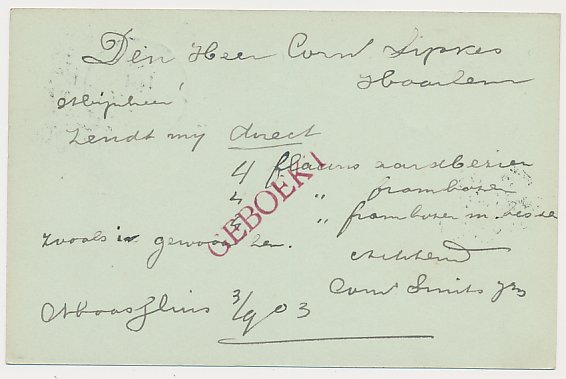 Den Heer Corns Sipkes
Haarlem
Mijnheer
Zendt mij direct
4 flacons aardbezien
4 " frambozen
3 " frambozen m. bessen
zooals ik gewoon ben.
GEBOEKT
Achtend
Corns Smits Jzn
Maassluis 3/9 03